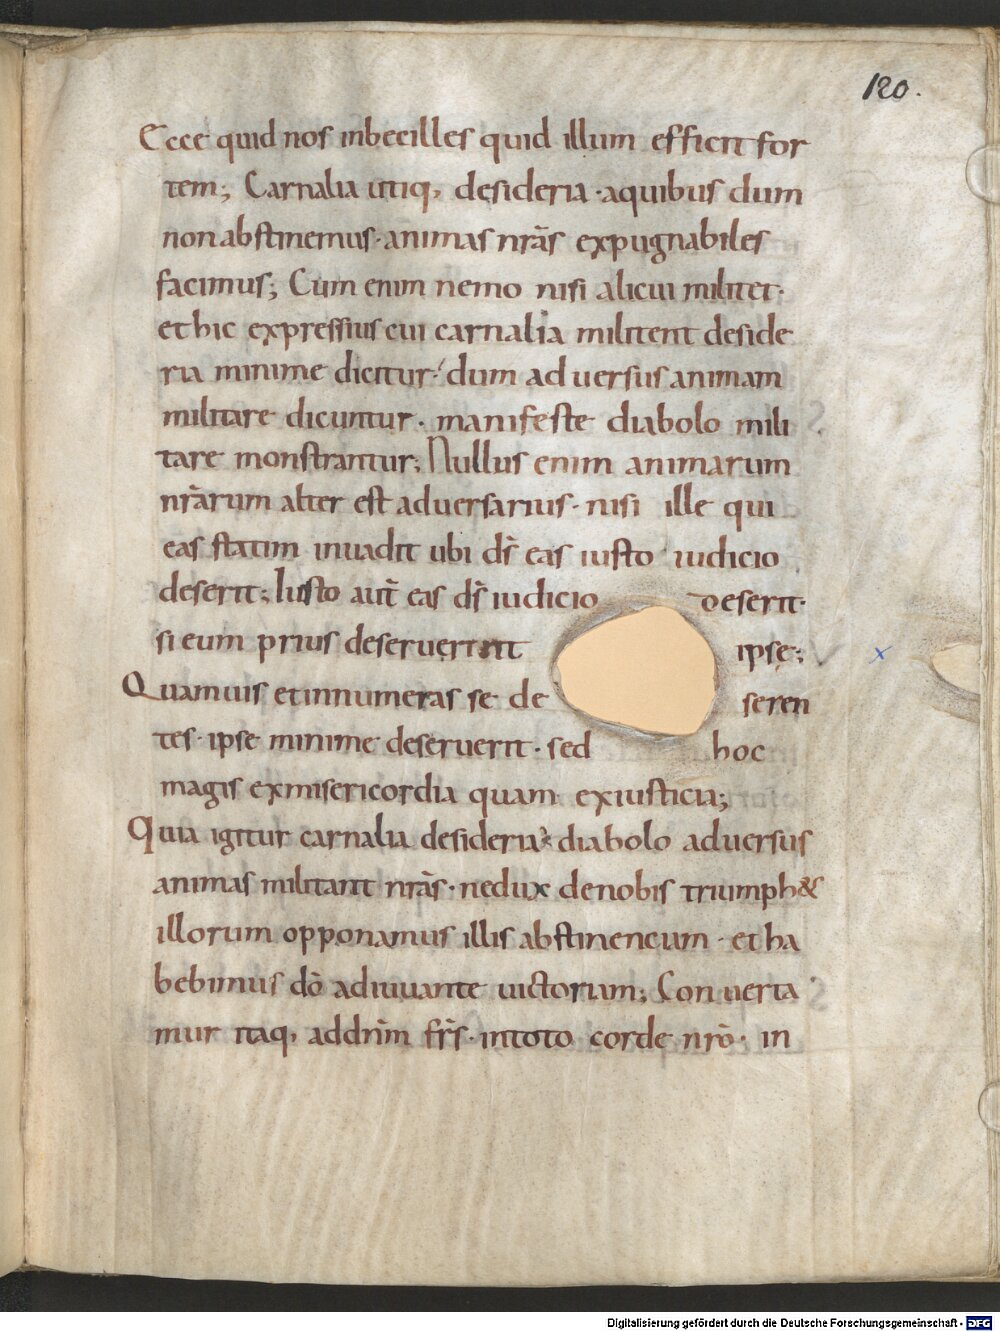 120.
Ecce quid nos inbecilles quid illum efficit for
tem; Carnalia utiq, desideria · aquibus dum
non abstinemus · animas nr̄as expugnabiles
facimus; Cum enim nemo nisi alicui militet ·
et hic expressius cui carnalia militent deside
ria minime dicitur · dum adversus animam
militare dicuntur · manifeste diabolo mili
tare monstrantur; Nullus enim animarum
nr̄arum alter est adversarius · nisi ille qui
eas statim invadit ubi dſ̄ eas iusto iudicio
deserit; Iusto aut̄ eas dſ̄ iudicio deserit ·
si eum prius deseruerint ipsę;
Quamvis et innumeras se de seren
tes · ipse minime deseruerit · sed hoc
magis ex misericordia quam ex iusticia;
Quia igitur carnalia desideria diabolo adversus
animas militant nr̄as · ne dux de nobis triumph&
illorum opponamus illis abstinenciam · et ha
bebimus dō adiuvante victoriam; Converta
mur itaq, ad dn̄m fr̄s · in toto corde nr̄o · in
Digitalisierung gefördert durch die Deutsche Forschungsgemeinschaft - DFG